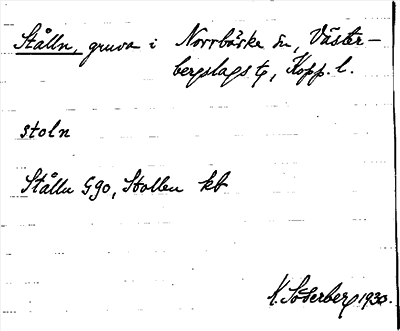 Stålln, gruva i Norrbärke sn, Väster-
bergslags tg, Kopp. l.
stoln
Stålln G90, Stollen kb
K. Söderberg 1930.